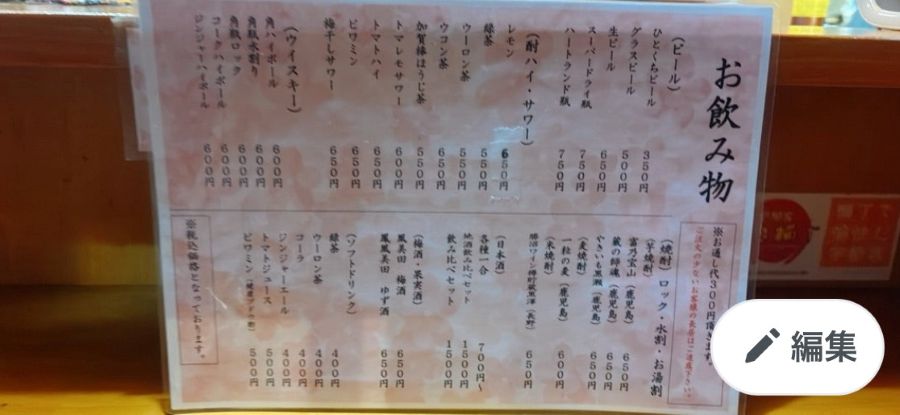 お飲み物
(ビール)
ひとくちビール 350円
グラスビール 500円
生ビール 650円
スーパードライ瓶 750円
ハートランド瓶 750円
(酎ハイ・サワー)
レモン 650円
緑茶 550円
ウーロン茶 550円
ウコン茶 650円
加賀棒ほうじ茶 550円
トマレモサワー 600円
トマトハイ 650円
ビワミン 650円
梅干しサワー 650円
(ウイスキー)
角ハイボール 600円
角瓶水割り 600円
角瓶ロック 600円
コークハイボール 600円
ジンジャーハイボール 600円
※お通し代300円頂きます。
ご注文の少ないお客様の長居はご遠慮下さい。
(焼酎) ロック・水割・お湯割
(芋焼酎)
富乃宝山 (鹿児島) 650円
蔵の師魂 (鹿児島) 650円
やきいも黒瀬 (鹿児島) 650円
(麦焼酎)
一粒の麦 (鹿児島) 600円
(米焼酎)
(長野) 650円
(日本酒)
各種一合 700円~
地酒飲み比べセット 1500円
飲み比べセット 1500円
(梅酒・果実酒)
鳳凰美田 梅酒 650円
鳳凰美田 ゆず酒 650円
(ソフトドリンク)
緑茶 400円
ウーロン茶 400円
コーラ 400円
ジンジャーエール 400円
トマトジュース 500円
ビワミン (健康ブドウ酢) 500円
※税込価格となっております。
編集